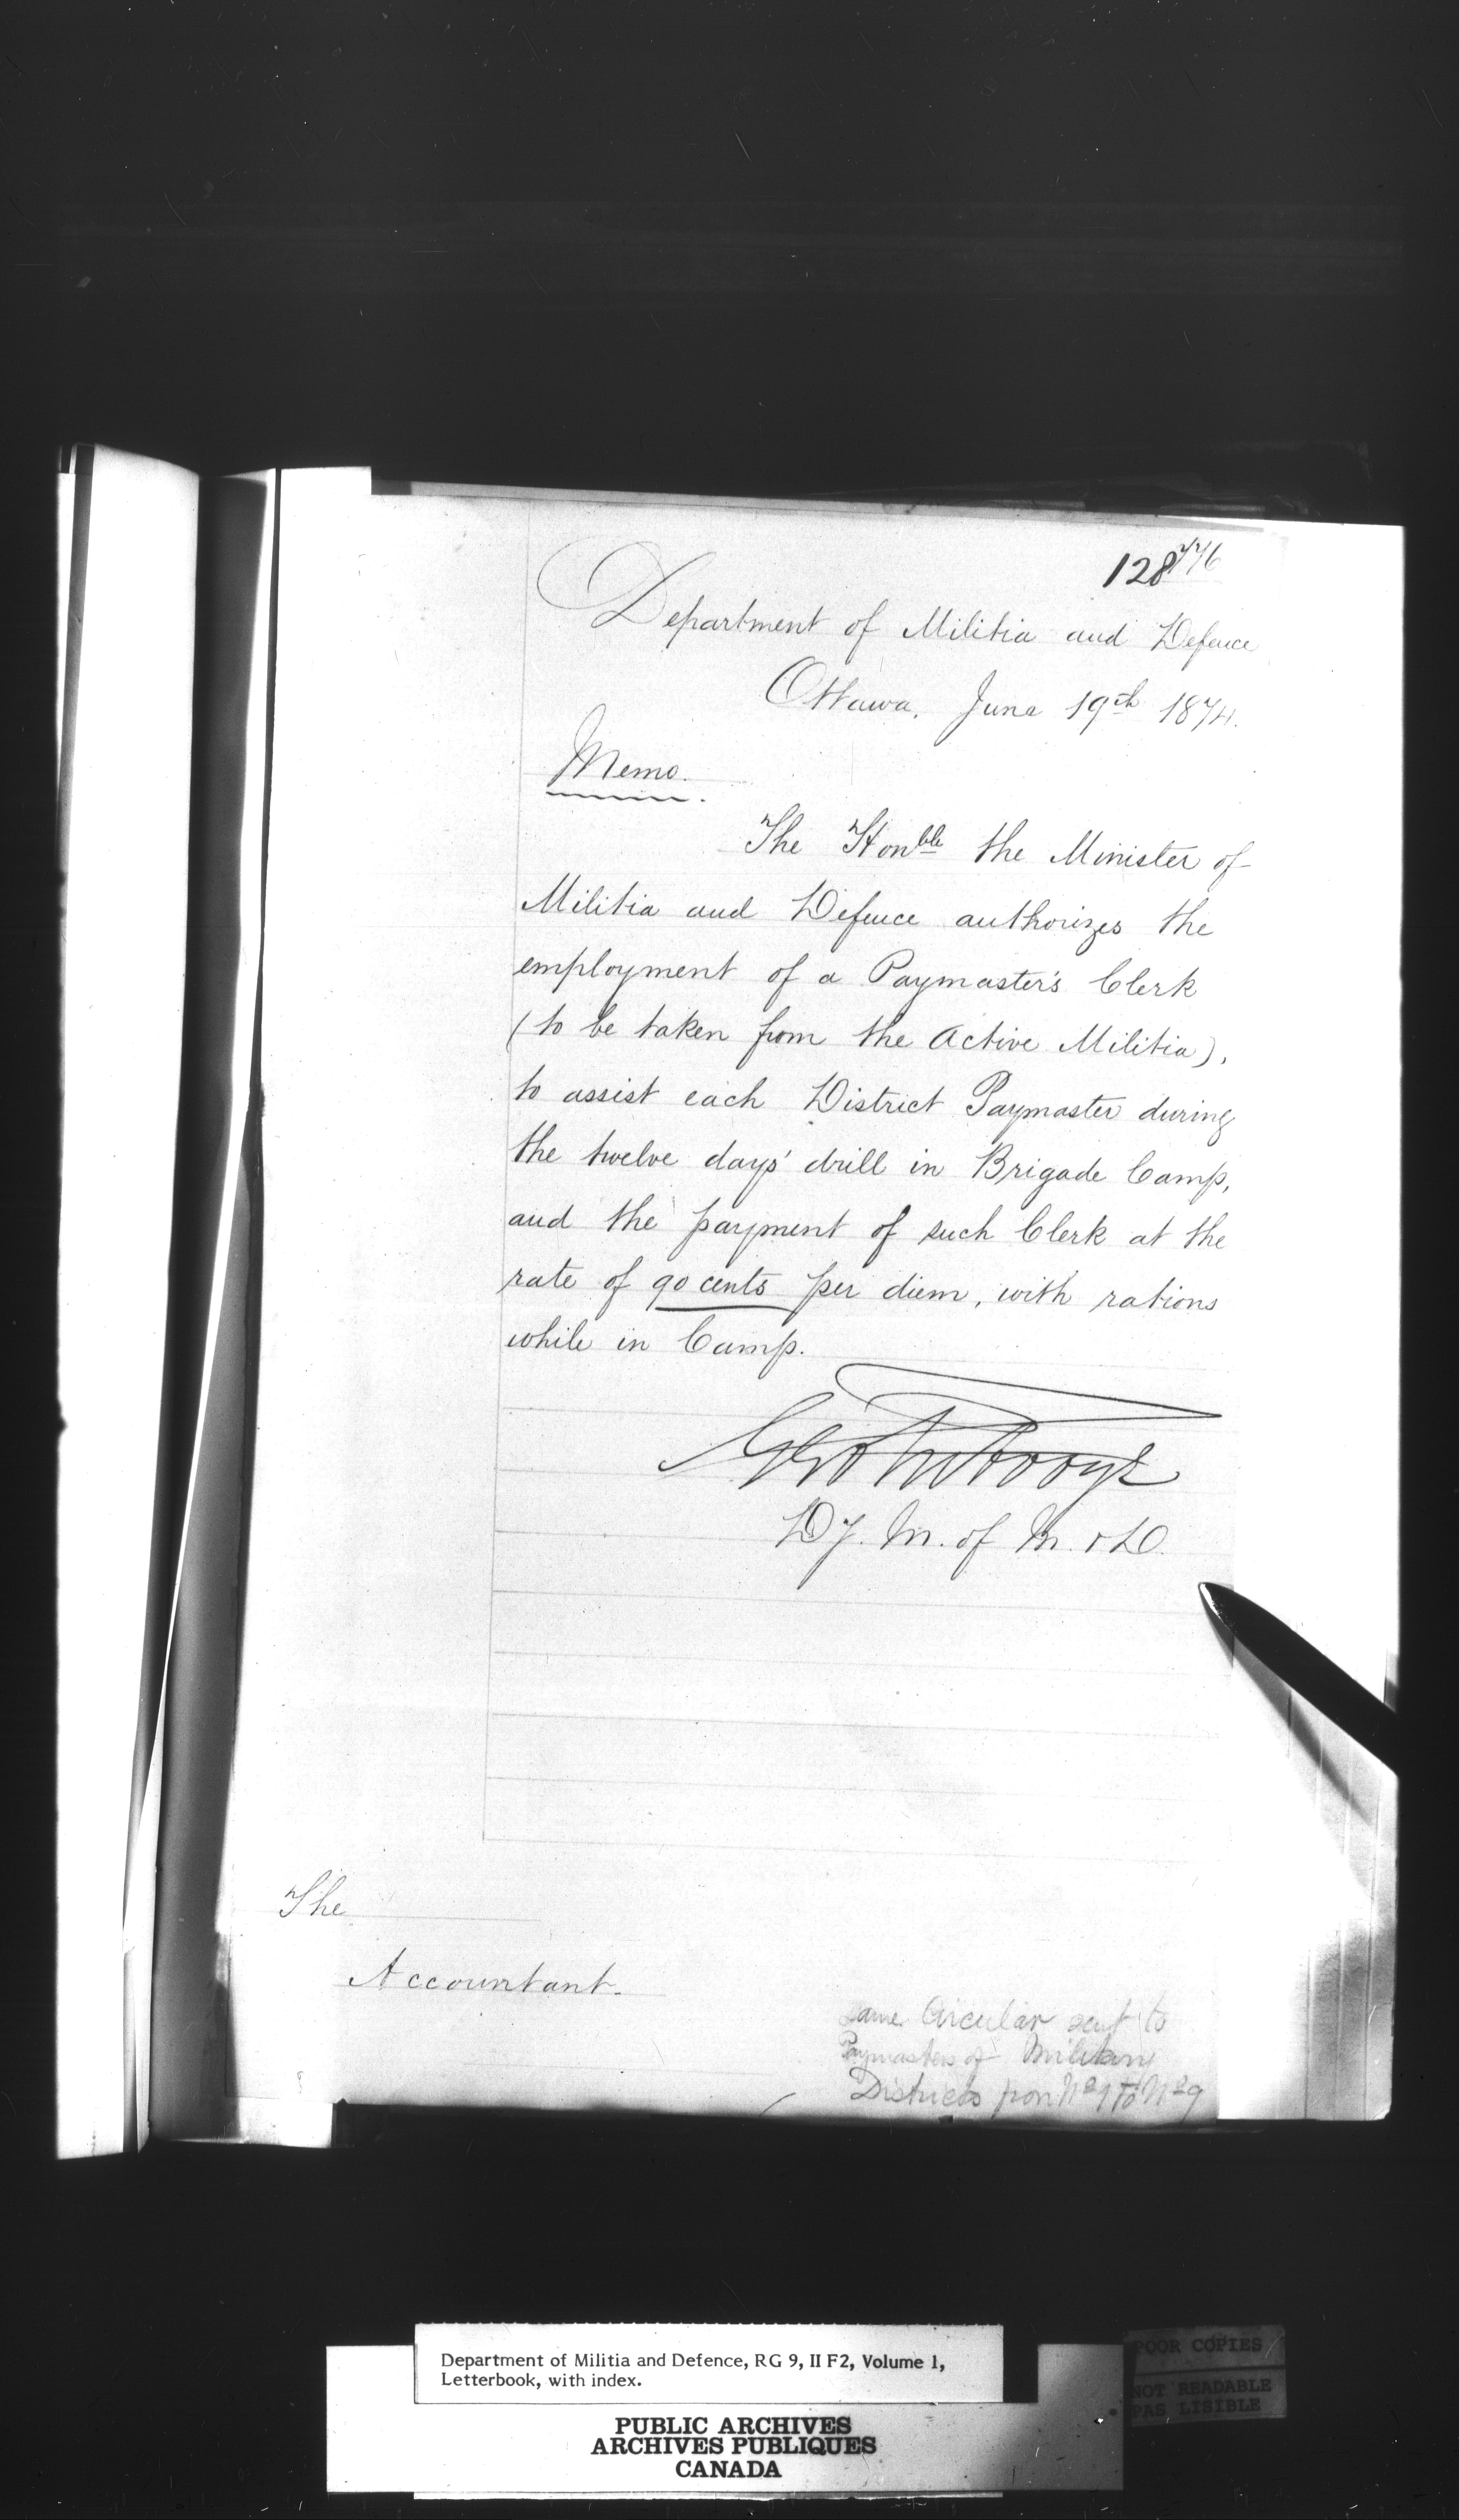 128
Department of Militia and Defence
Ottawa, June 19th 1874.
Memo.
The Honble the Minister of
Militia and Defence authorizes the
employment of a Paymaster's Clerk
(to be taken from the Active Militia),
to assist each District Paymaster during
the twelve days' drill in Brigade Camp,
and the payment of such Clerk at the
rate of 90 cents per diem, with rations
while in Camp.
D/. M. of M. & D.
The
Accountant.
Same Circular sent to
Paymasters of Military
Districts from No 1 To No 9
Department of Militia and Defence, RG 9, II F2, Volume 1,
Letterbook, with index.
PUBLIC ARCHIVES
ARCHIVES PUBLIQUES
CANADA
POOR COPIES
NOT READABLE
PAS LISIBLE